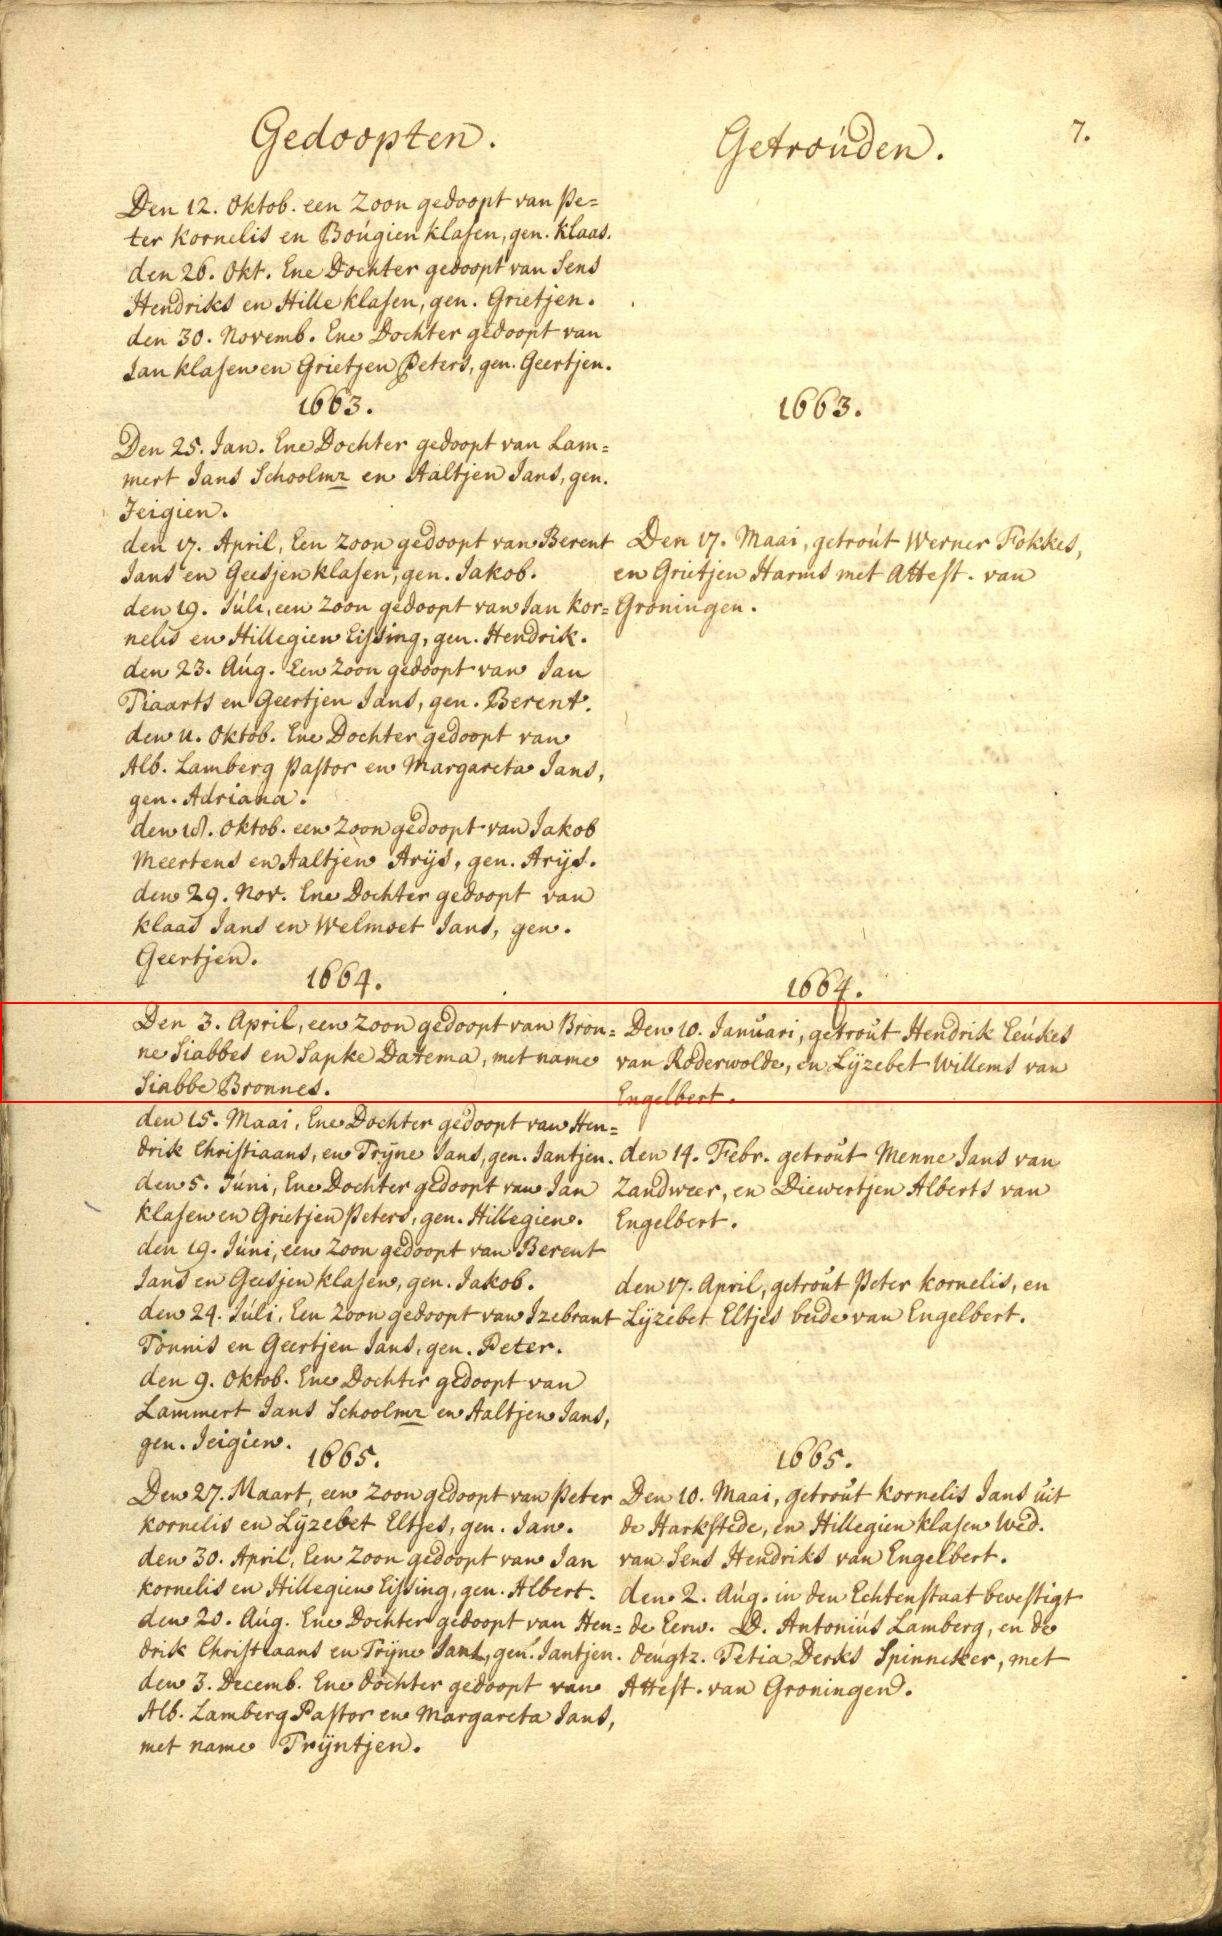 7.
Gedoopten.
Den 12. Oktob. een Zoon gedoopt van Pe=
ter Kornelis en Boúgien Klasen, gen. Klaas.
den 26. Okt. Ene Dochter gedoopt van Sens
Hendriks en Hille Klasen, gen. Grietjen.
den 30. Novemb. Ene Dochter gedoopt van
Jan Klasen en Grietjen Peters, gen. Geertjen.
1663.
Den 25. Jan. Ene Dochter gedoopt van Lam=
mert Jans Schoolmr en Aaltjen Jans, gen.
Jeigien.
den 17. April, Een Zoon gedoopt van Berent
Jans en Geesjen Klasen, gen. Jakob.
den 19. Júli, een Zoon gedoopt van Jan Kor=
nelis en Hillegien Eissing, gen. Hendrik.
den 23. Aúg. Een Zoon gedoopt van Jan
Tiaarts en Geertjen Jans, gen. Berent.
den 11. Oktob. Ene Dochter gedoopt van
Alb. Lamberg Pastor en Margareta Jans,
gen. Adriana.
den 18. Oktob. een Zoon gedoopt van Jakob
Meertens en Aaltjen Arijs, gen. Arijs.
den 29. Nov. Ene Dochter gedoopt van
Klaas Jans en Welmoet Jans, gen.
Geertjen.
1664.
Den 3. April, een Zoon gedoopt van Bron=
ne Siabbes en Sapke Datema, met name
Siabbe Bronnes.
den 15. Maai, Ene Dochter gedoopt van Hen=
drik Christiaans, en Trijne Jans, gen. Jantjen.
den 5. Júni, Ene Dochter gedoopt van Jan
Klasen en Grietjen Peters, gen. Hillegien.
den 19. Júni, een Zoon gedoopt van Berent
Jans en Geesjen Klasen, gen. Jakob.
den 24. Júli, Een Zoon gedoopt van Izebrant
Tonnis en Geertjen Jans, gen. Peter.
den 9. Oktob. Ene Dochter gedoopt van
Lammert Jans Schoolmr en Aaltjen Jans,
gen. Jeigien.
1665.
Den 27. Maart, een Zoon gedoopt van Peter
Kornelis en Lijzebet Eltjes, gen. Jan.
den 30. April, Een Zoon gedoopt van Jan
Kornelis en Hillegien Eissing, gen. Albert.
den 20. Aúg. Ene Dochter gedoopt van Hen=
drik Christiaans en Trijne Jans, gen. Jantjen.
den 3. Decemb. Ene dochter gedoopt van
Alb. Lamberg Pastor en Margareta Jans,
met name Trijntjen.
Getroúden.
1663.
Den 17. Maai, getroút Werner Fokkes,
en Grietjen Harms met Attest. van
Groningen.
1664.
Den 10. Januari, getroút Hendrik Eeúkes
van Roderwolde, en Lijzebet Willems van
Engelbert.
den 14. Febr. getroút Menne Jans van
Zandweer, en Diewertjen Alberts van
Engelbert.
den 17. April, getroút Peter Kornelis, en
Lijzebet Eltjes beide van Engelbert.
1665.
Den 10. Maai, getroút Kornelis Jans úit
de Harkstede, en Hillegien Klasen Wed.
van Sens Hendriks van Engelbert.
den 2. Aúg. in den Echtenstaat bevestigt
de Eerw. D. Antoniús Lamberg, en de
deúgtz. Tetia Derks Spinneker, met
Attest. van Groningen.